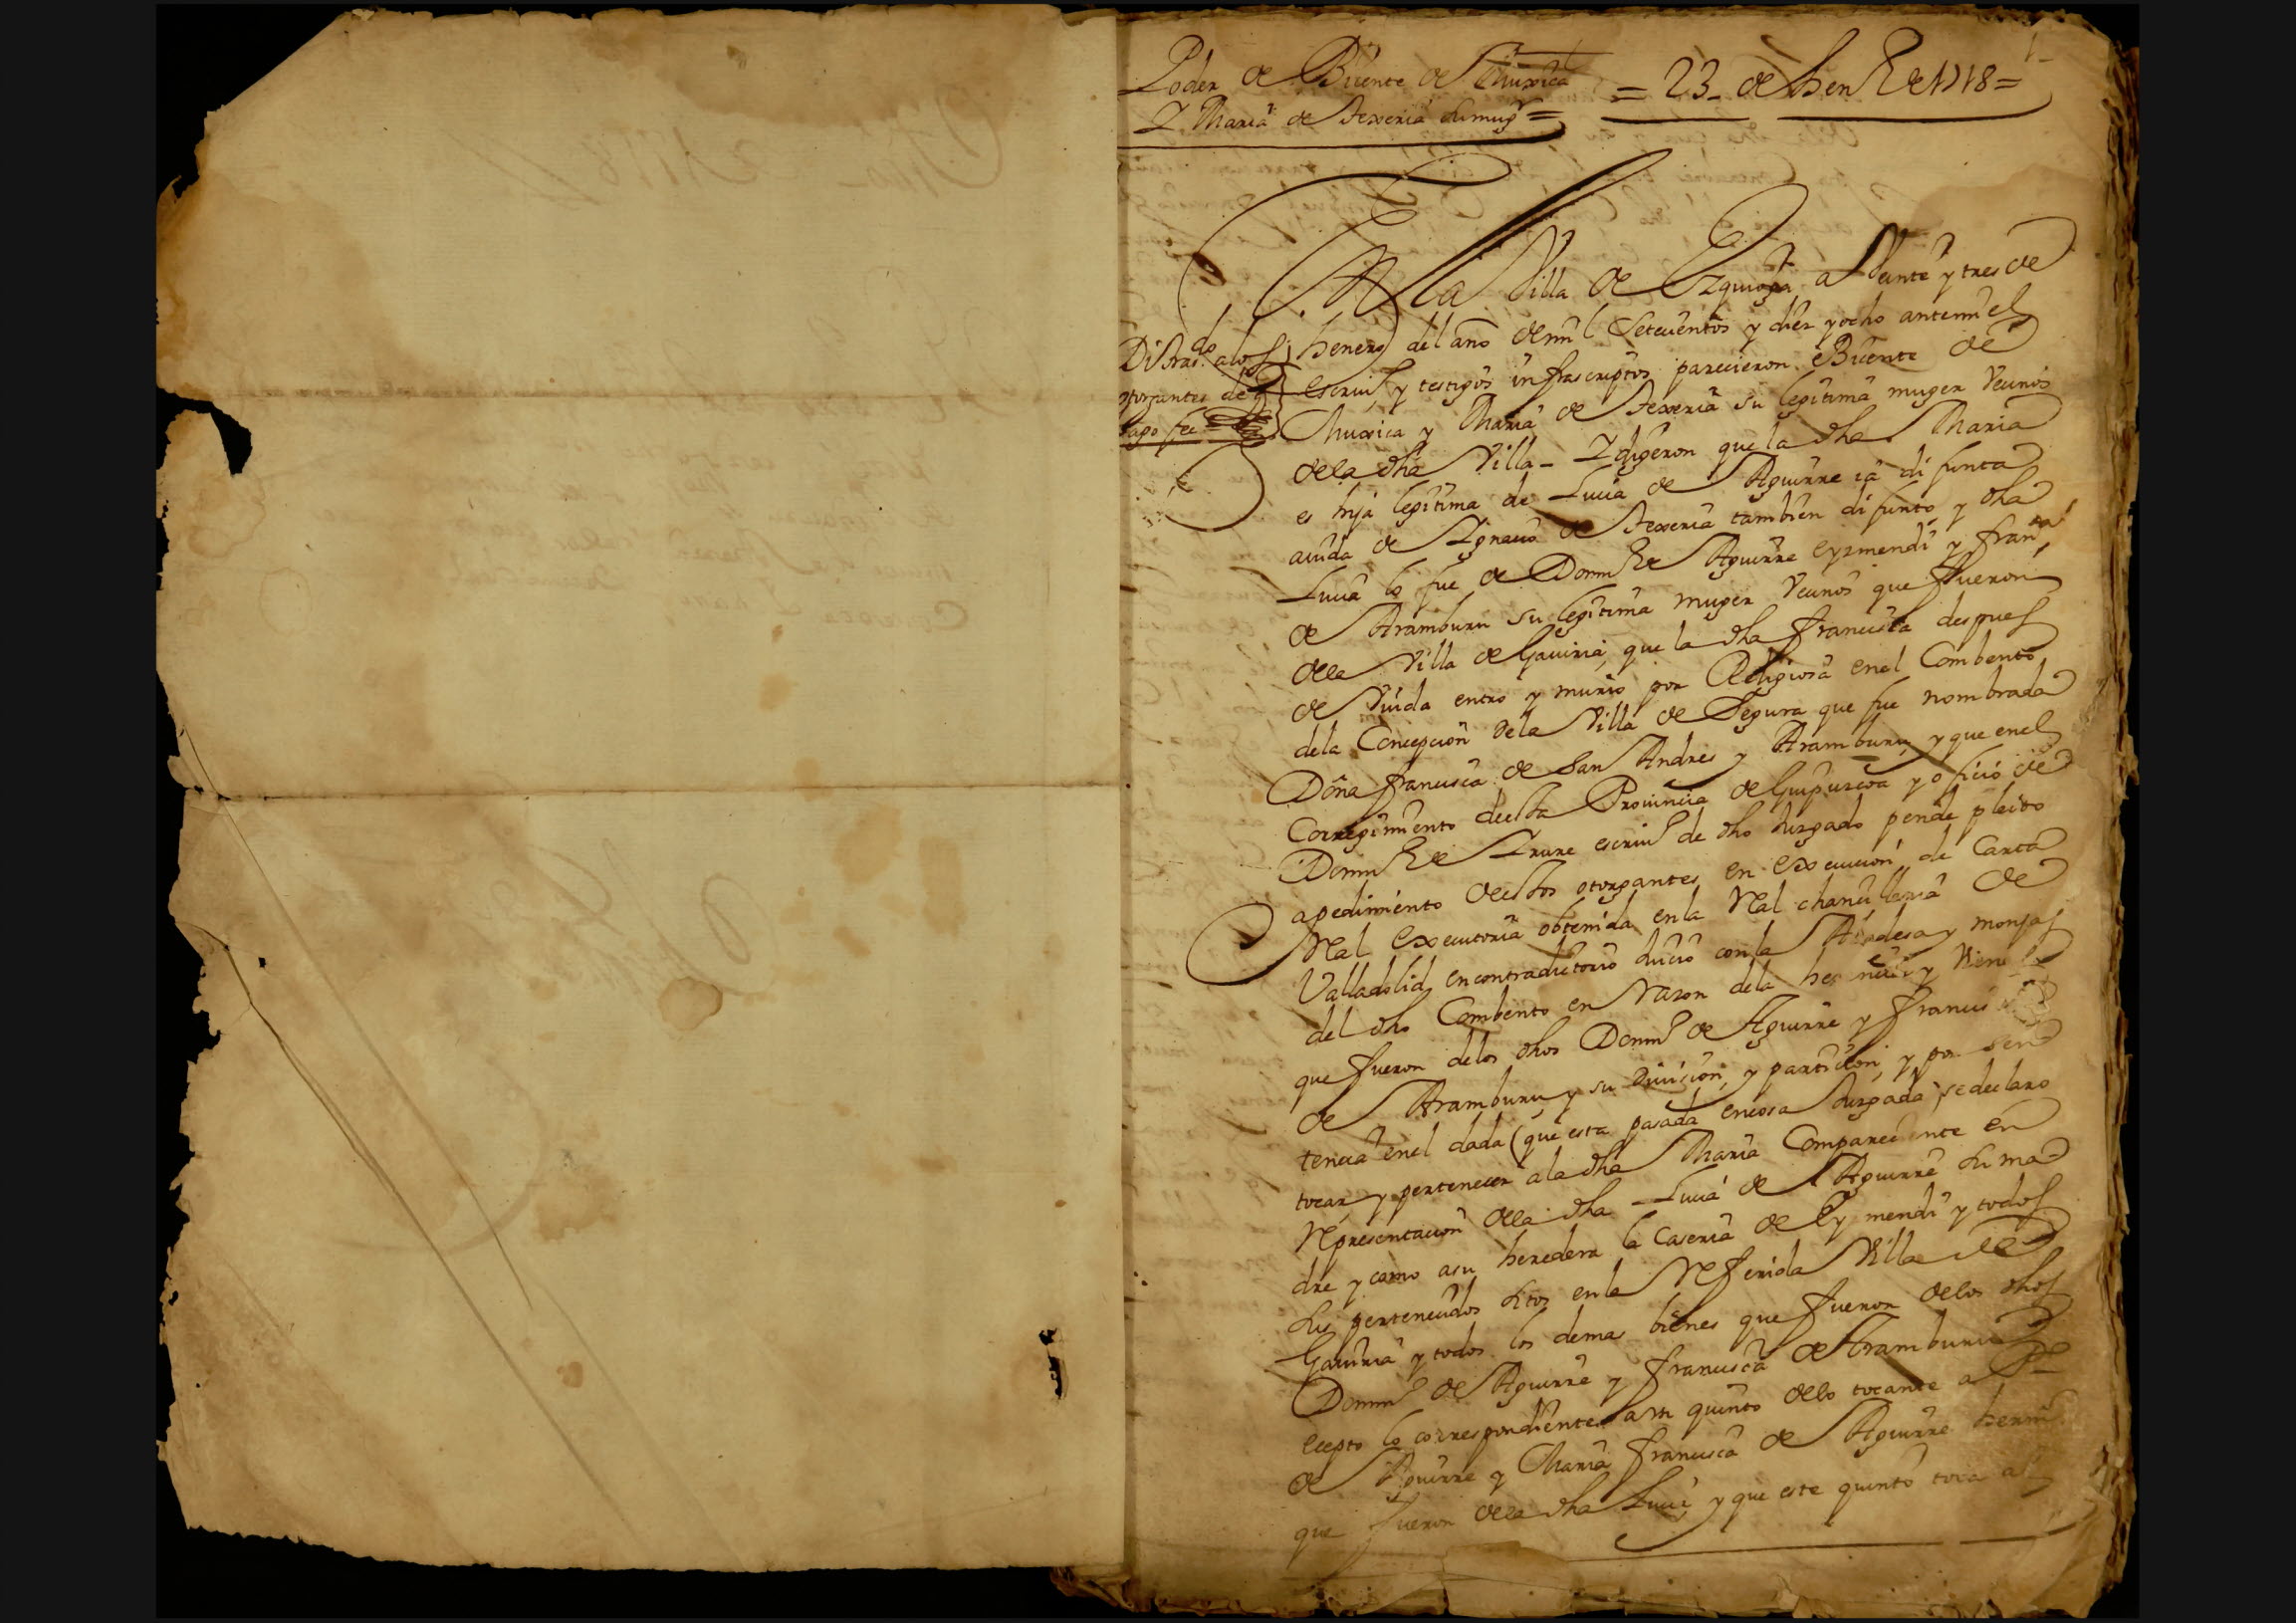 Poder de Bicente de Muxica
Y Maria de Texeria su mugr =
= 23 - de henº de 1718 =
En la Villa de Ezquioga a Veinte y tres de
henero del año de mil Setecientos y diez y ocho antemi el
escriuº y testigos infrascriptos parecieron Bicente de
Muxica y Maria de Texeria su legitima muger Vecinos
dela dha Villa - Y digeron que la dha Maria
es hija legitima de Lucia de Aguirre ia difunta
auida de Ignacio de Texeria tambien difunto, y dha
Lucia lo fue de Domºº de Aguirre eyzmendi y franca
de Aramburu su legitima muger Vecinos que fueron
dela Villa de Gauiria, que la dha francisca despues
de Viuda entro y murio por Religiosa enel Combento
dela Concepcion dela Villa de Segura que fue nombrada
Doña francisca de San Andres y Aramburu, y que enel
Corregimiento desta Prouincia de Guipuzcoa y oficio de
Domºº de Yrure escriuº de dho Juzgado pende pleito
apedimiento destos otorgantes en execucion de Carta
Real executoria obtenida en la Real chancilleria de
Valladolid, encontradictorio Juicio con la Abadesa y monjas
del dho Combento en Razon dela herencia y Vienes
que fueron delos dhos Domºº de Aguirre y francis
de Aramburu, y su Diuision, y particion, y por sen
tencia enel dada (que esta pasada encosa Juzgada) se declaro
tocar y pertenecer ala dha Maria Compareciente en
Representacion dela dha Lucia de Aguirre su ma
dre y como asu heredera la Caseria de Eyzmendi y todos
sus pertenecidos sitos enla Referida Villa de
Gauiria y todos los demas bienes que fueron delos dhos
Domºº de Aguirre y francisca de Aramburu
ecepto lo correspondiente a un quinto delo tocante a
de Aguirre y Maria francisca de Aguirre hermºˢ
que fueron dela dha Lucia, y que este quinto toca al
Di tras.do alos
otorgantes de
pago fee =